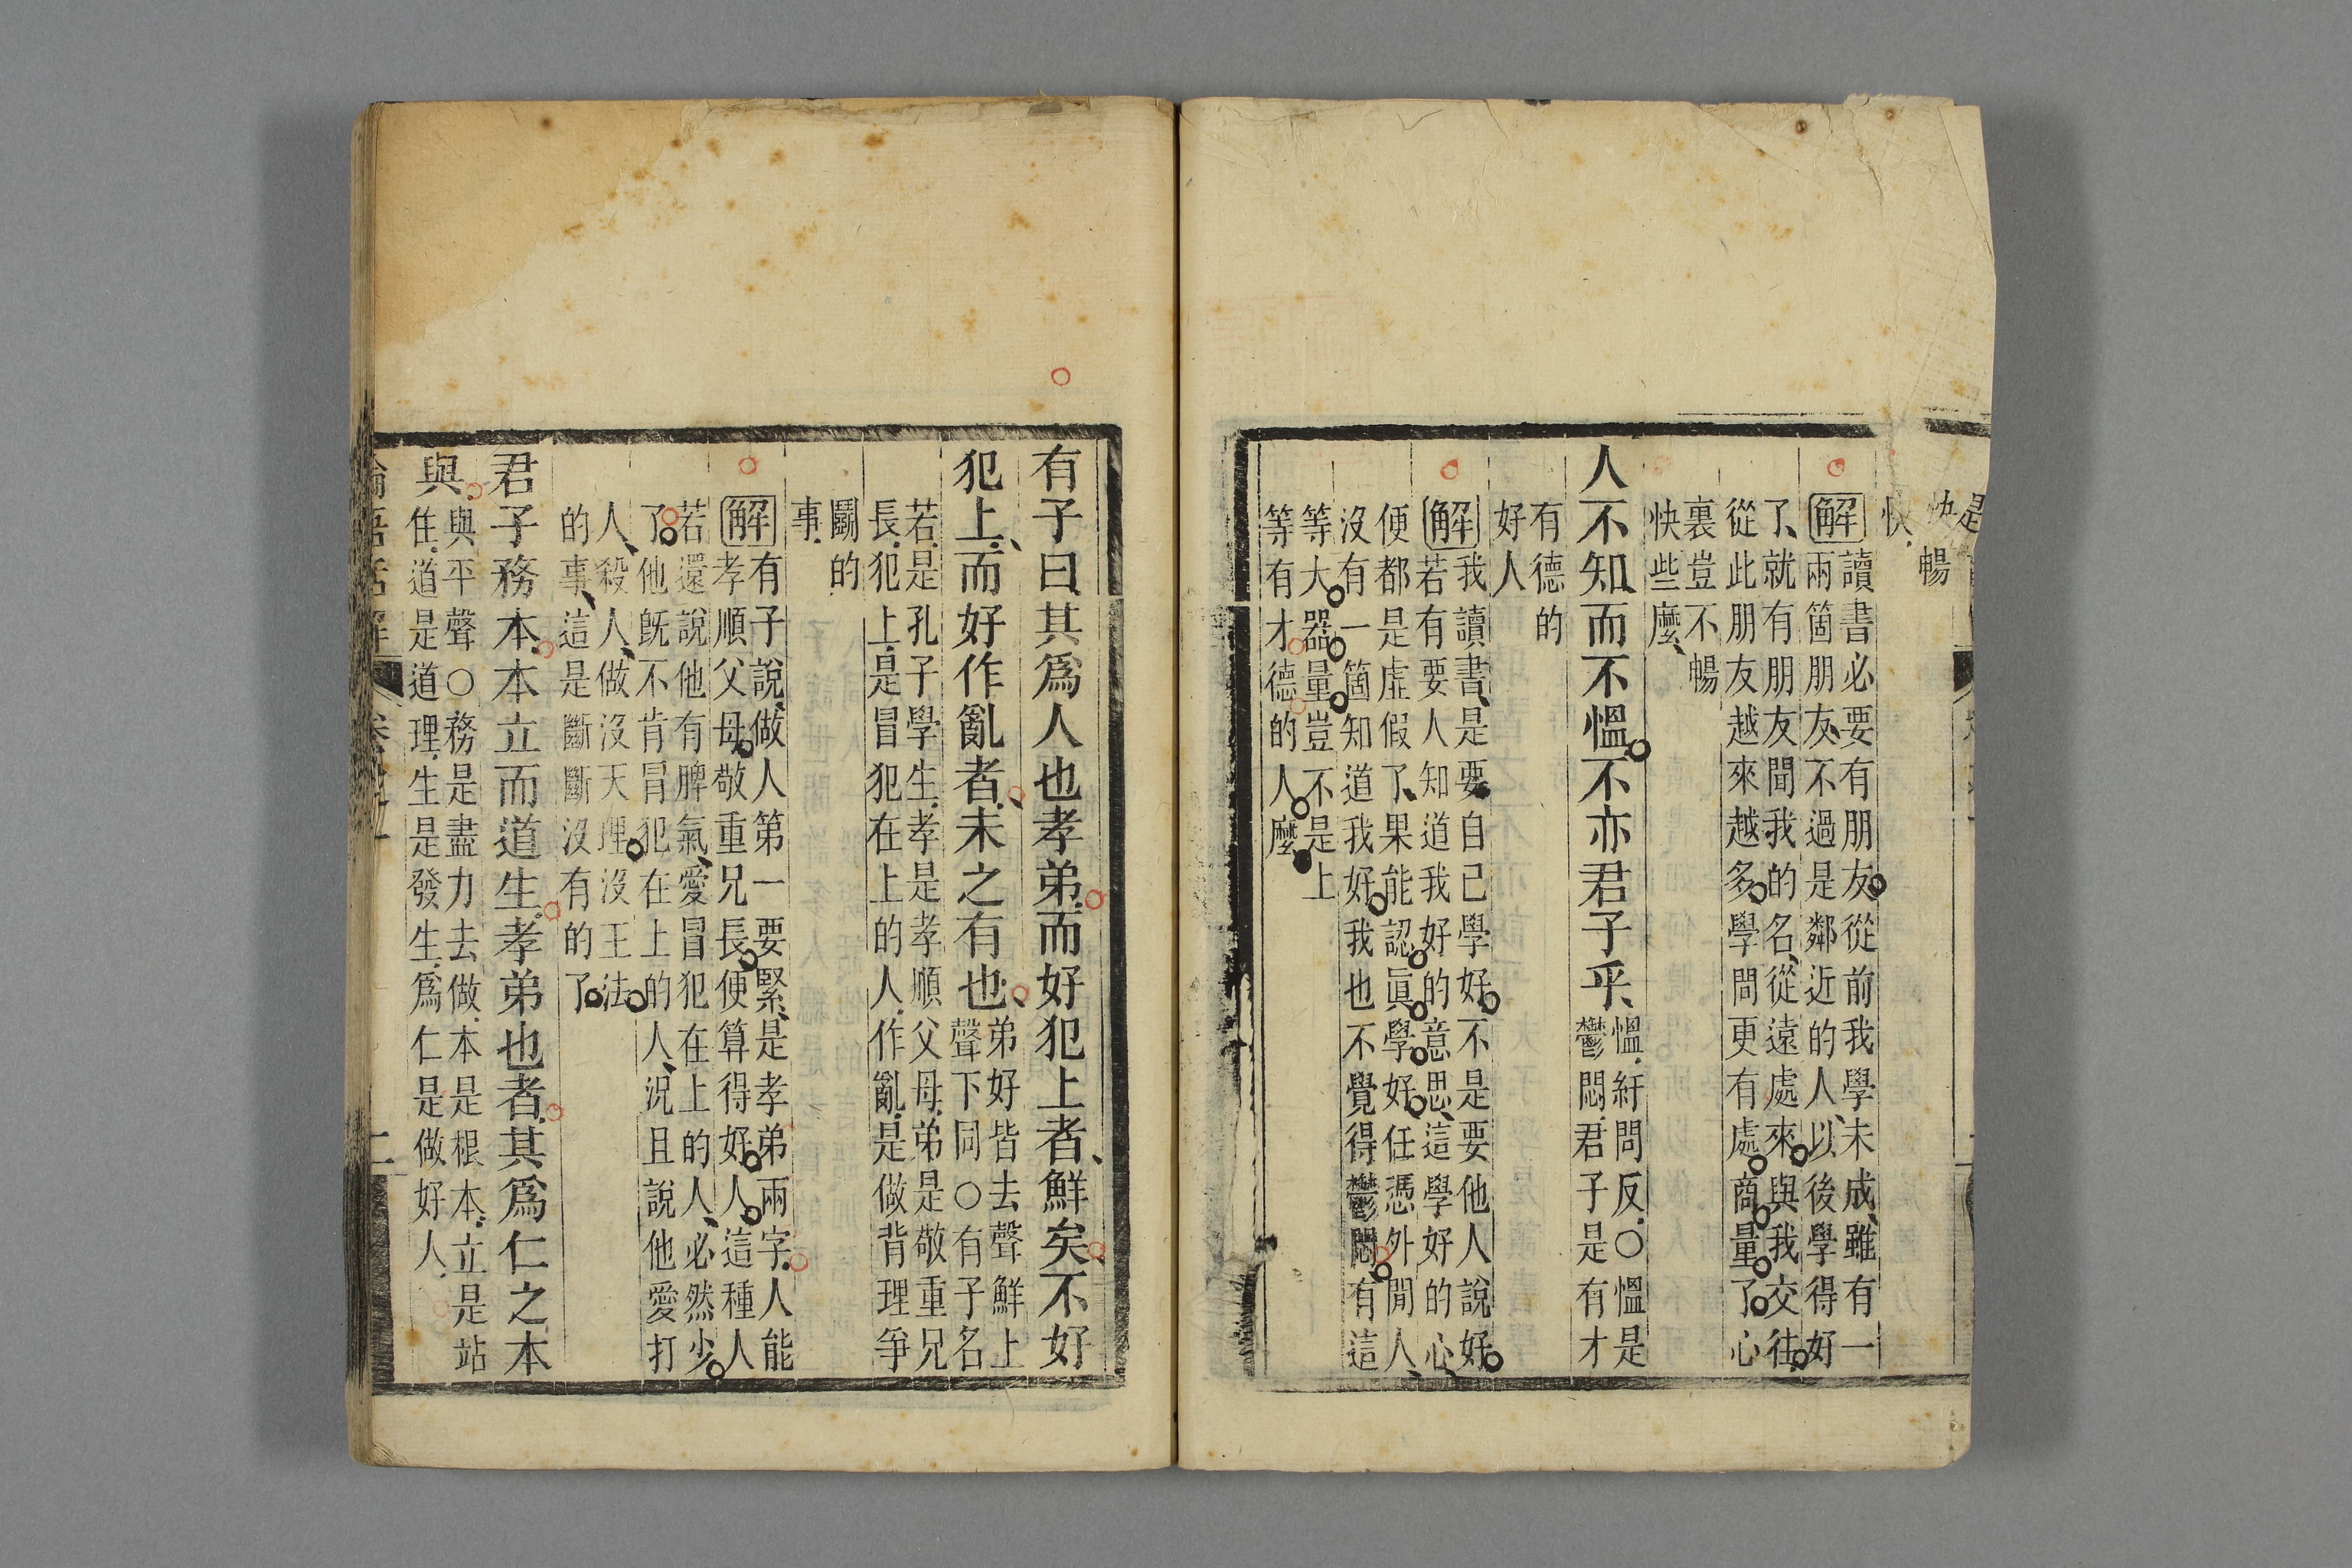 快
暢
快
解
讀書必要有朋友從前我學未成雖有一
兩箇朋友不過是鄰近的人以後學得好
了就有朋友聞我的名從遠處來與我交往
從此朋友越來越多學問更有處商量了心
裏豈不暢
快些麼
人不知而不慍不亦君子乎
慍紆問反○慍是
鬱悶君子是有才
有德的
好人
解
我讀書是要自己學好不是要他人說好
若有要人知道我好的意思這學好的心
便都是虛假了果能認眞學好任憑外閒人
沒有一箇知道我好我也不覺得鬱悶有這
等大器量豈不是上
等有才德的人麼
有子曰其爲人也孝弟而好犯上者鮮矣不好
犯上而好作亂者未之有也
弟好皆去聲鮮上
聲下同○有子名
若是孔子學生孝是孝順父母弟是敬重兄
長犯上是冒犯在上的人作亂是做背理爭
鬬的
事
解
有子說做人第一要緊是孝弟兩字人能
孝順父母敬重兄長便算得好人這種人
若還說他有脾氣愛冒犯在上的人必然少
了他旣不肯冒犯在上的人況且說他愛打
人殺人做沒天理沒王法
的事這是斷斷沒有的了
君子務本本立而道生孝弟也者其爲仁之本
與
與平聲○務是盡力去做本是根本立是站
住道是道理生是發生爲仁是做好人